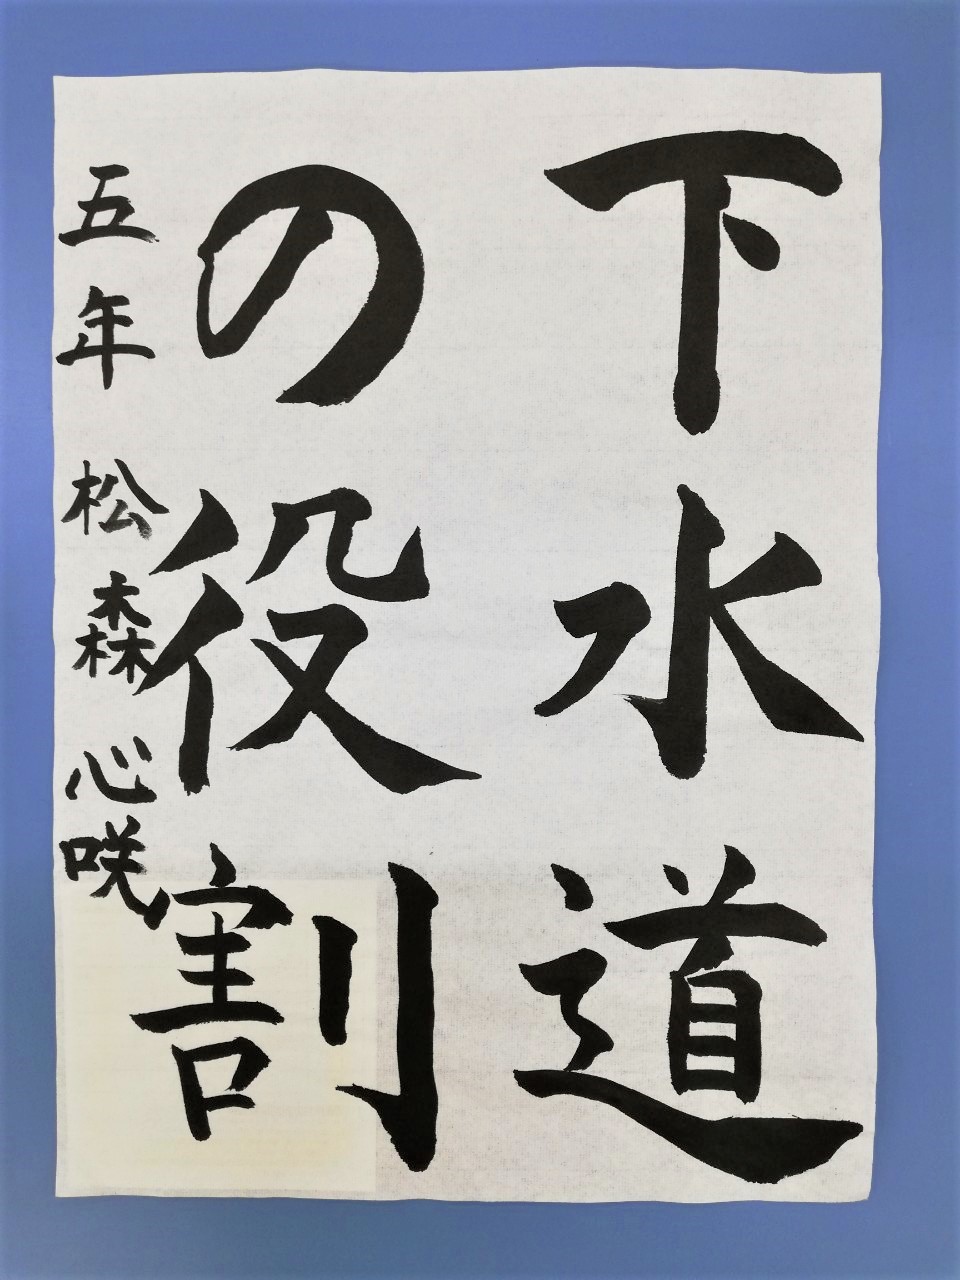 下水道
の役割
五年 松森 心咲